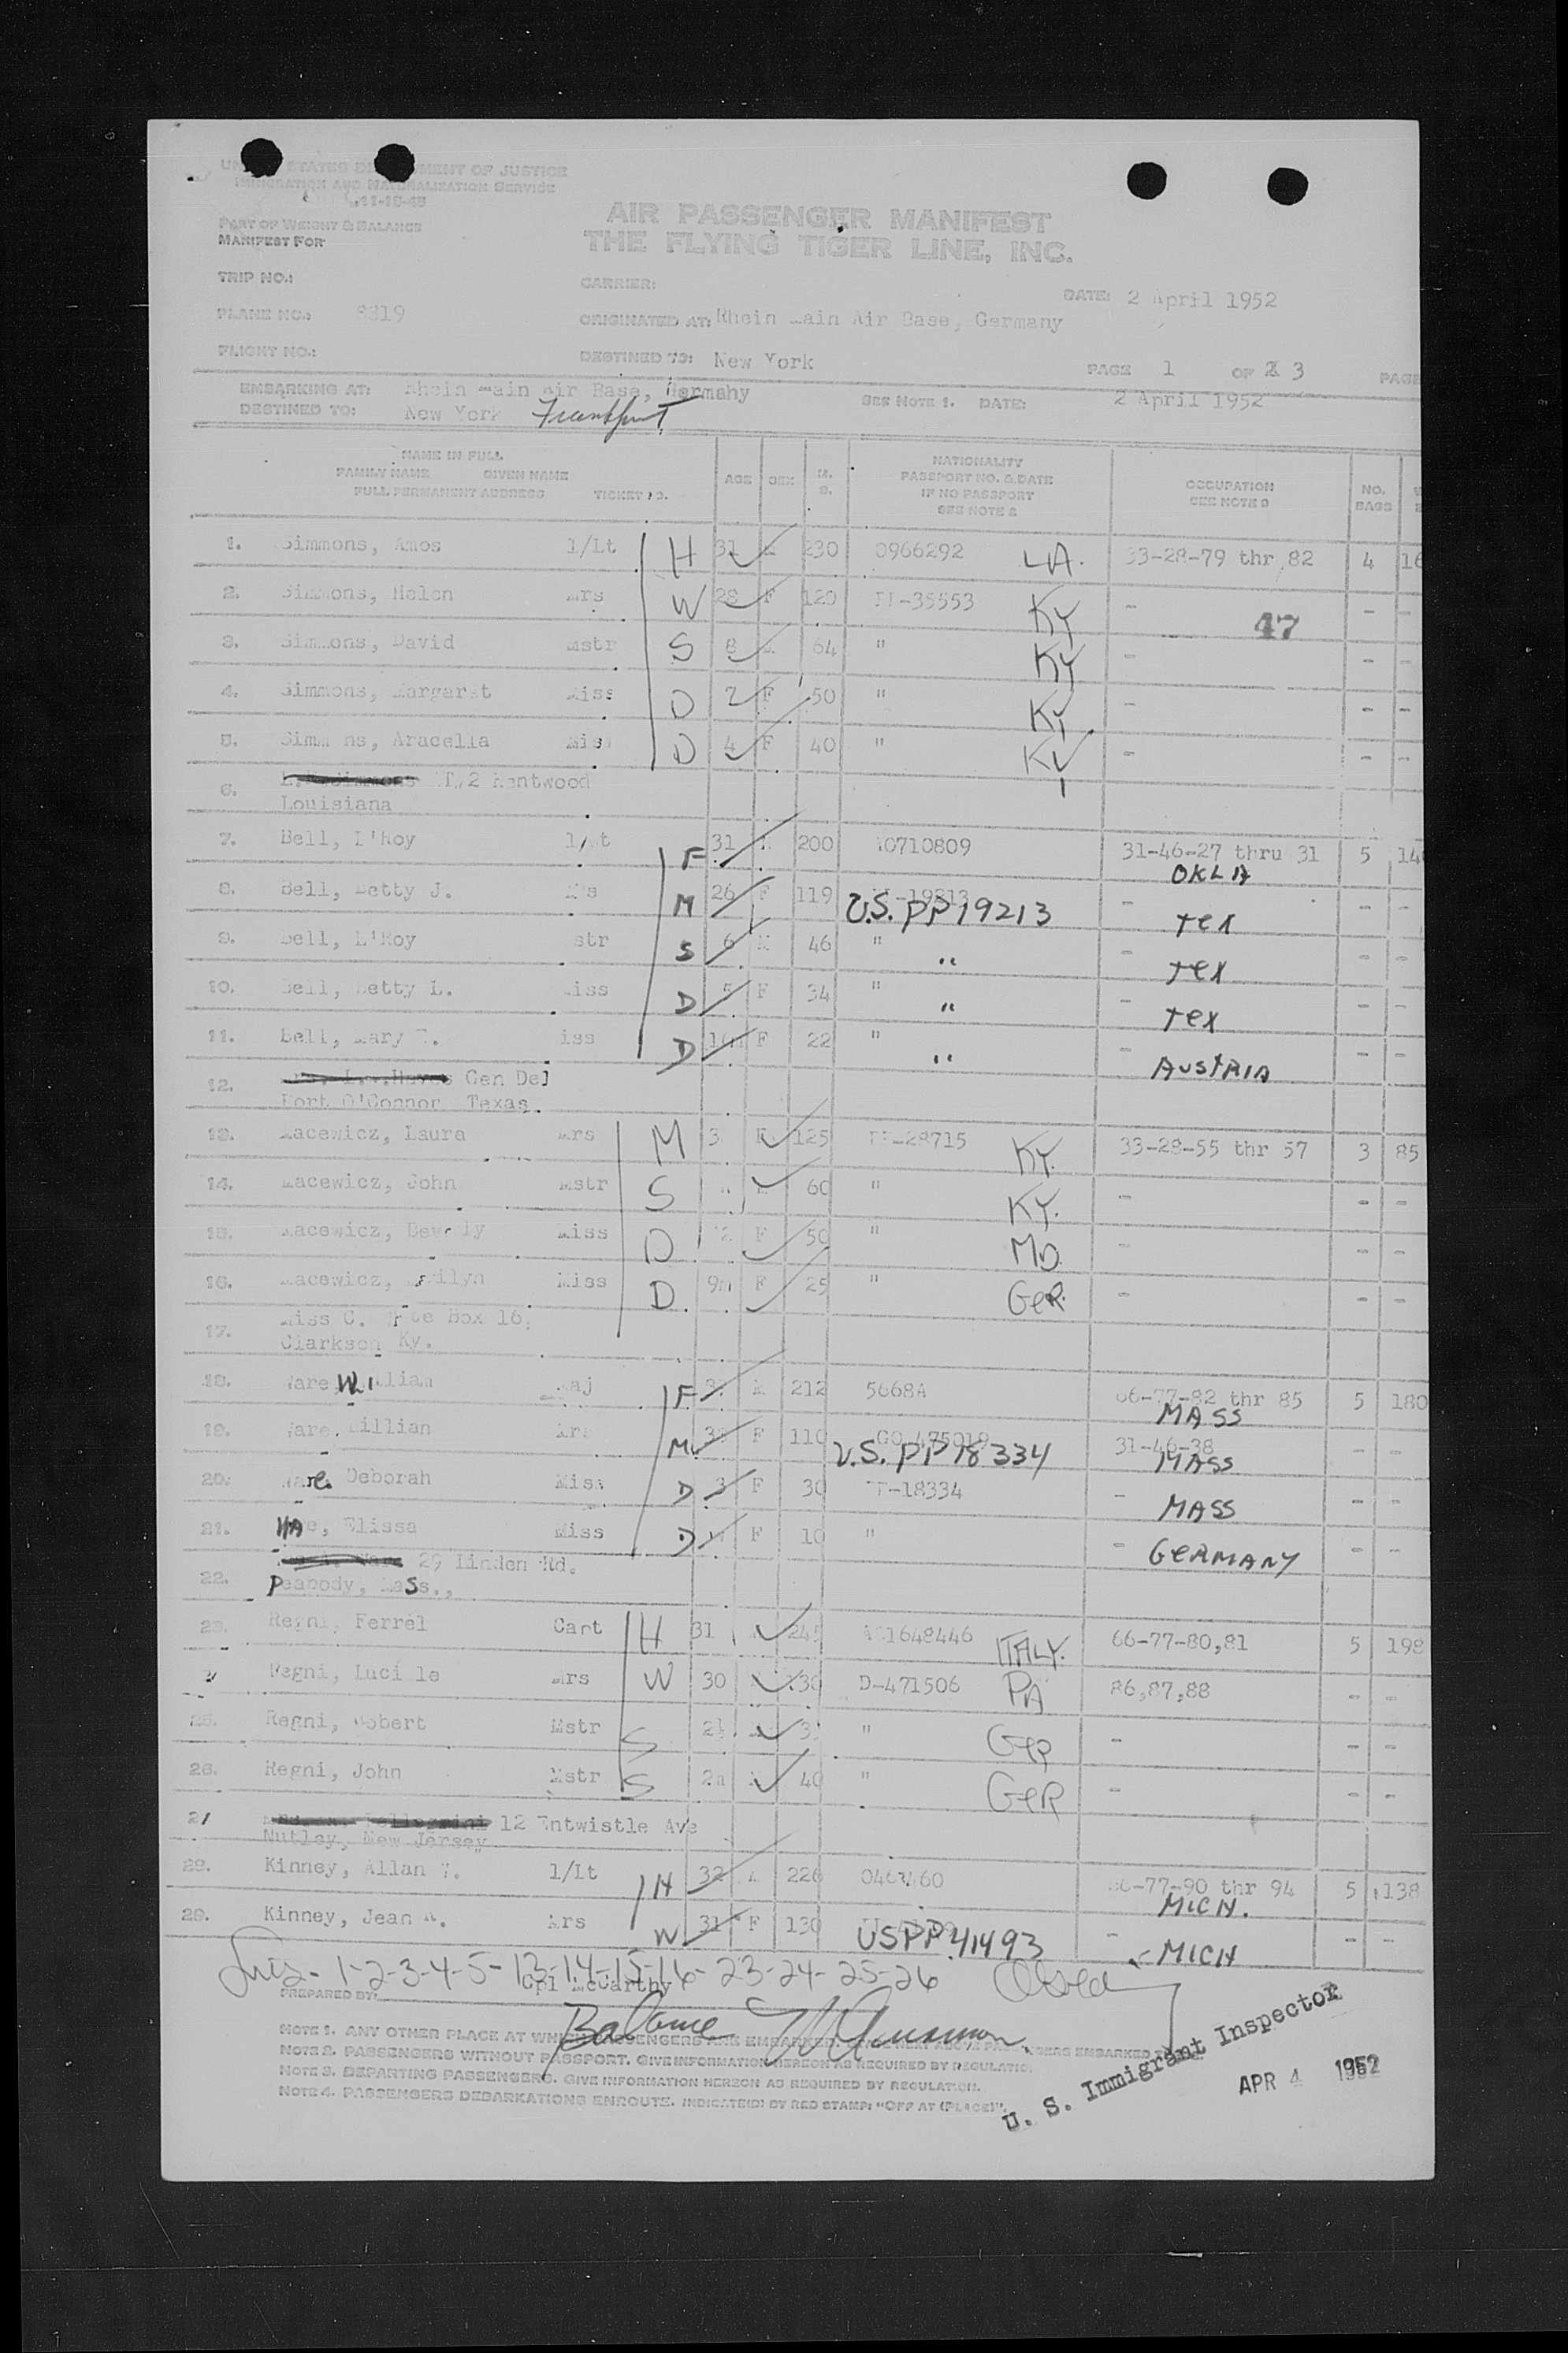 STATES DEPARTMENT OF JUSTICE
IMMIGRATION AND NATURALIZATION SERVICE
11-18-48
PART OF WEIGHT & BALANCE
MANIFEST FOR
AIR PASSENGER MANIFEST
THE FLYING TIGER LINE, INC.
TRIP NO.: CARRIER: DATE: 2 April 1952
PLANE NO.: 8319 ORIGINATED AT: Rhein Main Air Base, Germany
FLIGHT NO.: DESTINED TO: New York PAGE 1 OF 3 PAGE
EMBARKING AT: Rhein Main Air Base, Germany SEE NOTE 1. DATE: 2 April 1952
DESTINED TO: New York Frankfurt
NAME IN FULL
FAMILY NAME GIVEN NAME
FULL PERMANENT ADDRESS TICKET NO. AGE SEX
NATIONALITY
PASSPORT NO. & DATE
IF NO PASSPORT
SEE NOTE 2
OCCUPATION
SEE NOTE 3
NO.
BAGS
1. Simmons, Amos 1/Lt H 31 M 230 0966292 LA. 33-28-79 thr 82 4 16
2. Simmons, Helen Mrs W 28 F 120 -35553 KY - - -
47
3. Simmons, David Mstr S 8 M 64 " KY - - -
4. Simmons, Margaret Miss D 2 F 50 " KY - - -
5. Simmons, Aracella Miss D 4 F 40 " KY - - -
6. Kentwood
Louisiana
7. Bell, L'Roy 1/Lt F 31 M 200 0710809 31-46-27 thru 31 5 14
OKLA
8. Bell, Betty J. Mrs M 26 F 119 U.S. PP 19213 - Tex - -
9. Bell, L'Roy Mstr S 6 M 46 " " - Tex - -
10. Bell, Betty L. Miss D 5 F 34 " " - Tex - -
11. Bell, Mary Miss D F 22 " " - AUSTRIA - -
12. Gen Del
Port O'Connor Texas.
13. Macewicz, Laura Mrs M 3 F 125 -28715 KY. 33-28-55 thr 57 3 85
14. Macewicz, John Mstr S M 60 " KY. - - -
15. Macewicz, Beverly Miss D 2 F 50 " MD. - - -
16. Macewicz, Marilyn Miss D. 9m F 25 " GER. - - -
17. Miss C. Rte Box 16,
Clarkson Ky.
18. Ware William Maj F M 212 5668A 66-77-82 thr 85 5 180
MASS
19. Ware, Lillian Mrs M F 110 U.S. PP 18334 31-46-38 MASS - -
20. Ware Deborah Miss D 3 F 30 -18334 - MASS - -
21. Ware, Elissa Miss D F 10 " - GERMANY - -
22. 29 Linden Rd.
Peabody, Mass.,
23. Regni, Ferrel Capt H 31 M 245 1648446 ITALY. 66-77-80,81 5 198
Regni, Lucille Mrs W 30 130 D-471506 PA 86,87,88 - -
25. Regni, Robert Mstr S 2½ " GER - - -
26. Regni, John Mstr S M 40 " GER - - -
27 12 Entwistle Ave
Nutley, New Jersey
28. Kinney, Allan 1/Lt H 32 M 226 66-77-90 thr 94 5 138
MICH.
29. Kinney, Jean A. Mrs W 31 F 130 USPP 41493 - MICH - -
1-2-3-4-5-13-14-15-16-23-24-25-26
PREPARED BY: Cpl McCarthy
Balance
NOTE 1. ANY OTHER PLACE AT WHICH PASSENGERS ARE EMBARKED.
NOTE 2. PASSENGERS WITHOUT PASSPORT. GIVE INFORMATION HEREON AS REQUIRED BY REGULATION.
NOTE 3. DEPARTING PASSENGERS. GIVE INFORMATION HEREON AS REQUIRED BY REGULATION.
NOTE 4. PASSENGERS DEBARKATIONS ENROUTE. INDICATE(D) BY RED STAMP: "OFF AT (PLACE)".
U. S. Immigrant Inspector
APR 4 1952